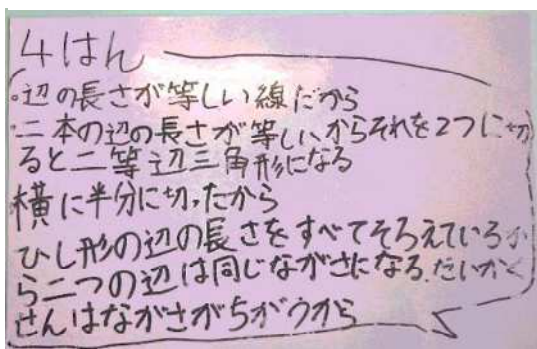 4はん
・辺の長さが等しい線だから
・二本の辺の長さが等しいからそれを2つに切
ると二等辺三角形になる
横に半分に切ったから
ひし形の辺の長さをすべてそろえているか
ら二つの辺は同じながさになる.たいかく
せんはながさがちがウから